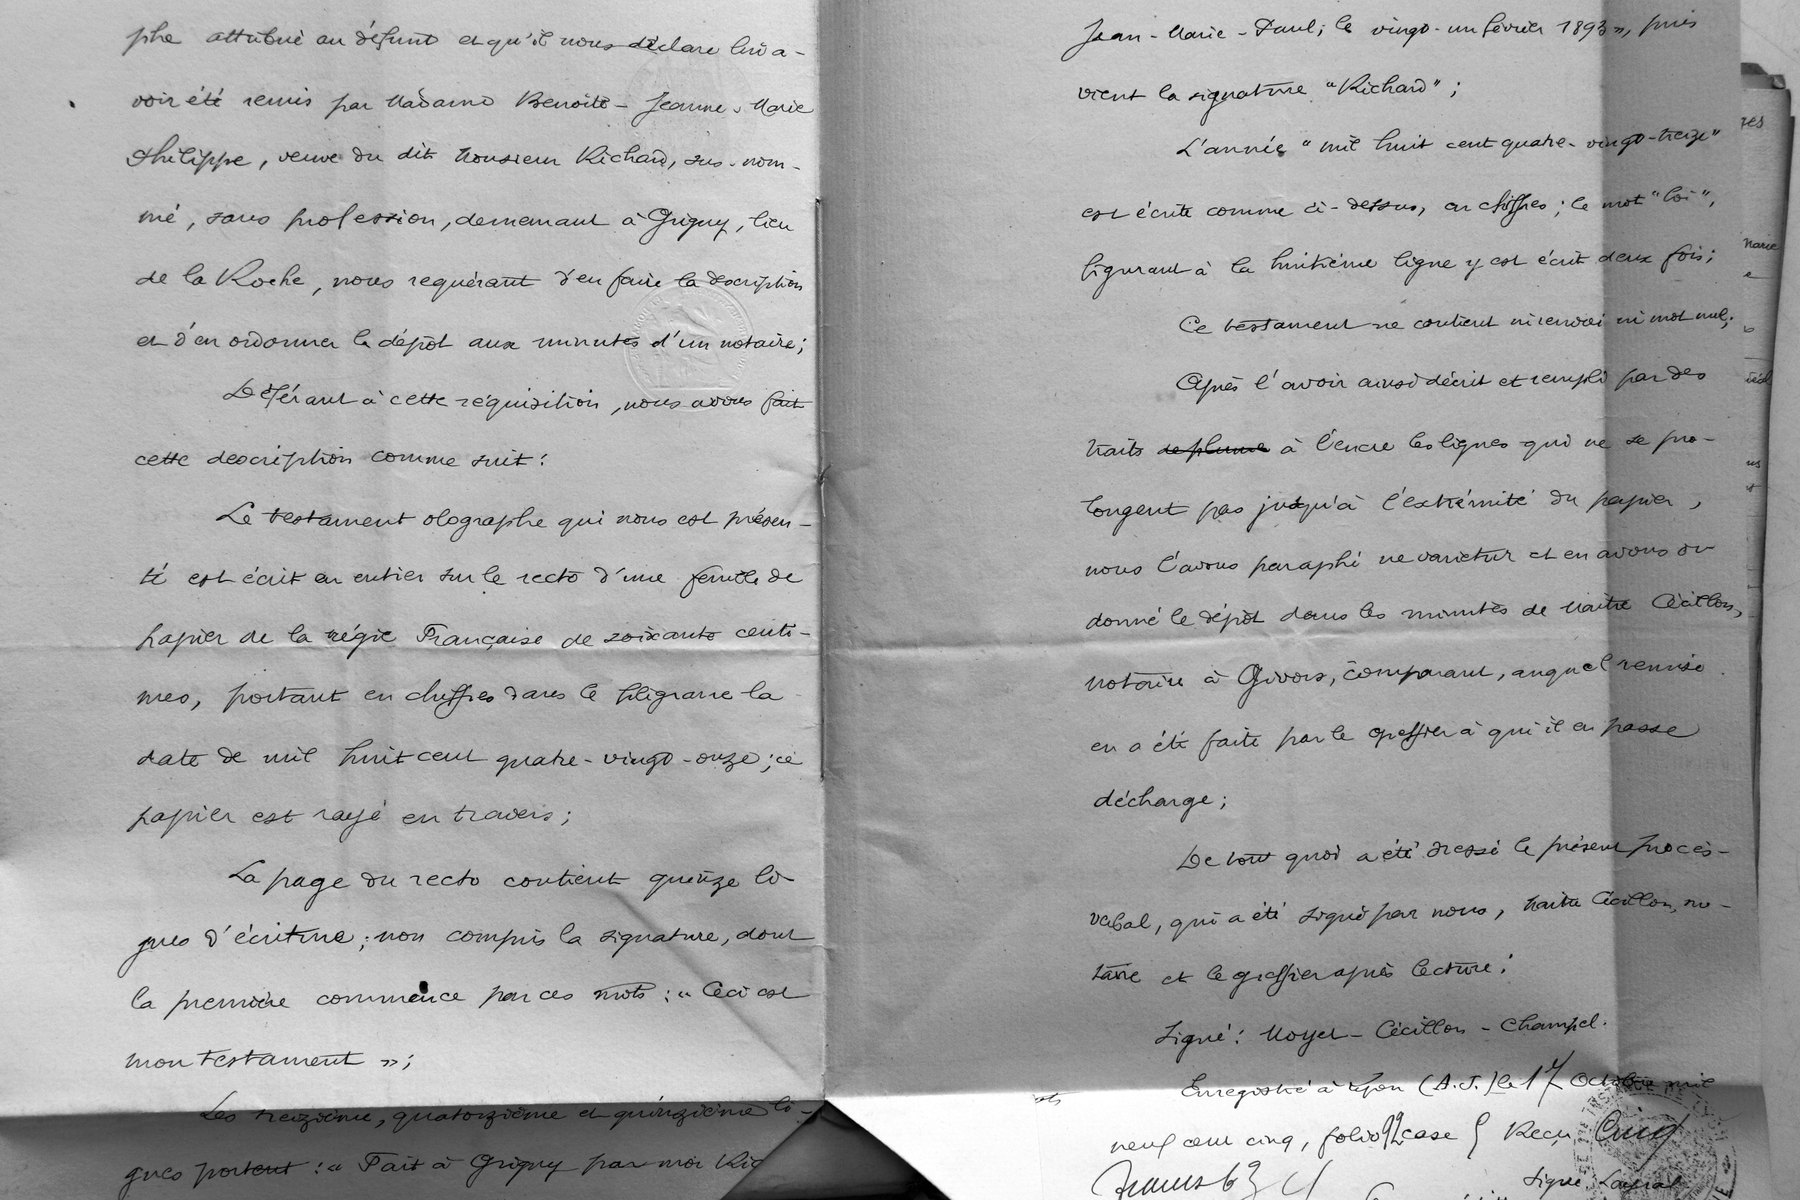 phe attribué au défunt et qu'il nous déclare lui a-
voir été remis par Madame Benoîte-Jeanne-Marie
Philippe, veuve du dit Monsieur Richard, sus-nom-
mé, sans profession, demeurant à Grigny, lieu
de la Roche, nous requérant d'en faire la description
et d'en ordonner le dépôt aux minutes d'un notaire;
Déférant à cette réquisition, nous avons fait
cette description comme suit:
Le testament olographe qui nous est présen-
té est écrit en entier sur le recto d'une feuille de
papier de la régie Française de soixante centi-
mes, portant en chiffres dans le filigrane la
date de mil huit cent quatre-vingt-onze; ce
papier est rayé en travers;
La page du recto contient quinze li-
gnes d'écriture; non compris la signature, dont
la première commence par ces mots: « Ceci est
mon testament »;
Les treizième, quatorzième et quinzième li-
gnes portent: « Fait à Grigny par moi Ric
Jean-Marie-Paul; le vingt-un février 1893 », puis
vient la signature "Richard";
L'année "mil huit cent quatre-vingt-treize"
est écrite comme ci-dessus, en chiffres; le mot "loi",
figurant à la huitième ligne y est écrit deux fois;
Ce testament ne contient ni renvoi ni mot nul;
Après l'avoir ainsi décrit et rempli par des
traits de plume à l'encre les lignes qui ne se pro-
longent pas jusqu'à l'extrémité du papier,
nous l'avons paraphé ne varietur et en avons or
donné le dépôt dans les minutes de Maître Cécillon,
notaire à Givors, comparant, auquel remise
en a été faite par le greffier à qui il en passe
décharge;
De tout quoi a été dressé le présent procès-
verbal, qui a été signé par nous, Maître Cécillon, no-
taire et le greffier après lecture:
Signé: Moyet-Cécillon-Champel.
Enregistré à Lyon (A.J.) le 17 Octobre mil
neuf cent cinq, folio 92 case 9 Reçu Cinq
Signé